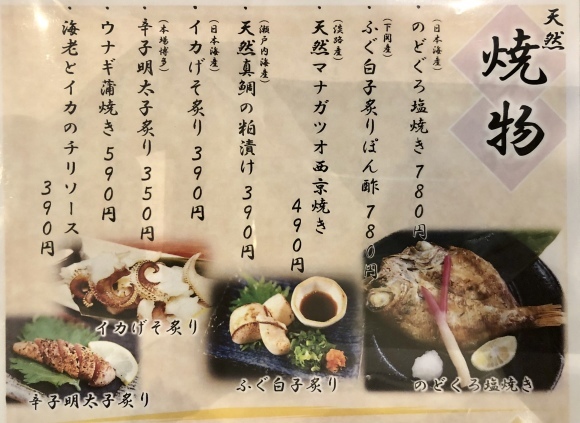 天然
焼物
(日本海産)
のどぐろ塩焼き 780円
(下関産)
ふぐ白子炙りぽん酢 780円
(淡路産)
天然マナガツオ西京焼き
490円
(瀬戸内海産)
天然真鯛の粕漬け 390円
(日本海産)
イカげそ炙り 390円
(本場博多)
辛子明太子炙り 350円
ウナギ蒲焼き 590円
海老とイカのチリソース
390円
イカげそ炙り
辛子明太子炙り
ふぐ白子炙り
のどぐろ塩焼き